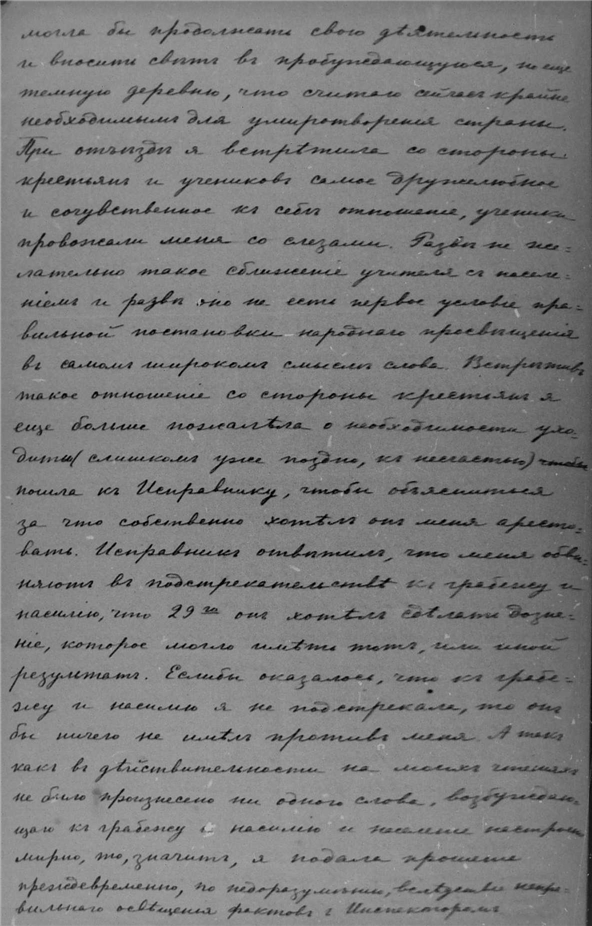 могла бы продолжать свою дѣятельность
и вносить свѣтъ въ пробуждающуюся, но еще
темную деревню, что считаю сейчасъ крайне
необходимымъ для умиротворенія страны.
При отъѣздѣ я встрѣтила со стороны
крестьянъ и учениковъ самое дружелюбное
и сочувственное къ себѣ отношеніе, ученики
провожали меня со слезами. Развѣ не же-
лательно такое сближеніе учителя съ населе-
ніемъ и развѣ оно не есть первое условіе пра-
вильной постановки народнаго просвѣщенія
въ самомъ широкомъ смыслѣ слова. Встрѣтивъ
такое отношеніе со стороны крестьянъ я
еще больше пожалѣла о необходимости ухо-
дить и (слишкомъ уже поздно, къ несчастью)
пошла къ Исправнику, чтобы объясниться
за что собственно хотѣлъ онъ меня аресто-
вать. Исправникъ отвѣтилъ, что меня обви-
няютъ въ подстрекательствѣ къ грабежу и
насилію, что 29го онъ хотѣлъ сдѣлать дозна-
ніе, которое могло имѣть тотъ, или иной
результатъ. Еслибы оказалось, что къ грабе-
жу и насилію я не подстрекала, то онъ
бы ничего не имѣлъ противъ меня. А такъ
какъ въ дѣйствительности на моихъ чтеніяхъ
не было произнесено ни одного слова, возбуждаю-
щаго къ грабежу и насилію и населеніе настроено
мирно, то, значитъ, я подала прошеніе
преждевременно, по недоразумѣнію, вслѣдствіе непра-
вильнаго освѣщенія фактовъ г. Инспекторомъ